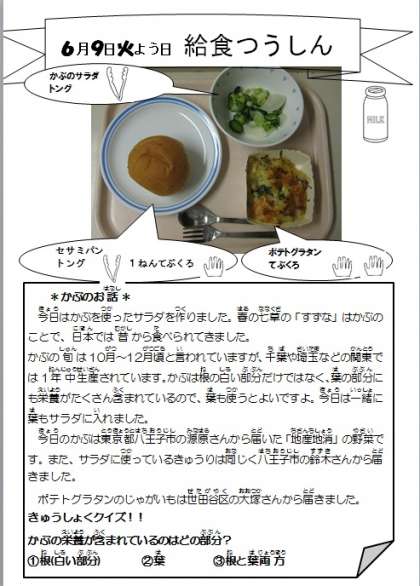 6月9日火よう日 給食つうしん
かぶのサラダ
トング
MILK
セサミパン
トング
1ねんてぶくろ
ポテトグラタン
てぶくろ
*かぶのお話*
今日はかぶを使ったサラダを作りました。春の七草の「すずな」はかぶの
ことで、日本では昔から食べられてきました。
かぶの旬は10月~12月頃と言われていますが、千葉や埼玉などの関東で
は1年中生産されています。かぶは根の白い部分だけではなく、葉の部分に
も栄養がたくさん含まれているので、葉も使うとよいですよ。今日は一緒に
葉もサラダに入れました。
今日のかぶは東京都八王子市の源原さんから届いた「地産地消」の野菜で
す。また、サラダに使っているきゅうりは同じく八王子市の鈴木さんから届
きました。
ポテトグラタンのじゃがいもは世田谷区の大塚さんから届きました。
きゅうしょくクイズ!!
かぶの栄養が含まれているのはどの部分?
①根(白い部分) ②葉 ③根と葉両方